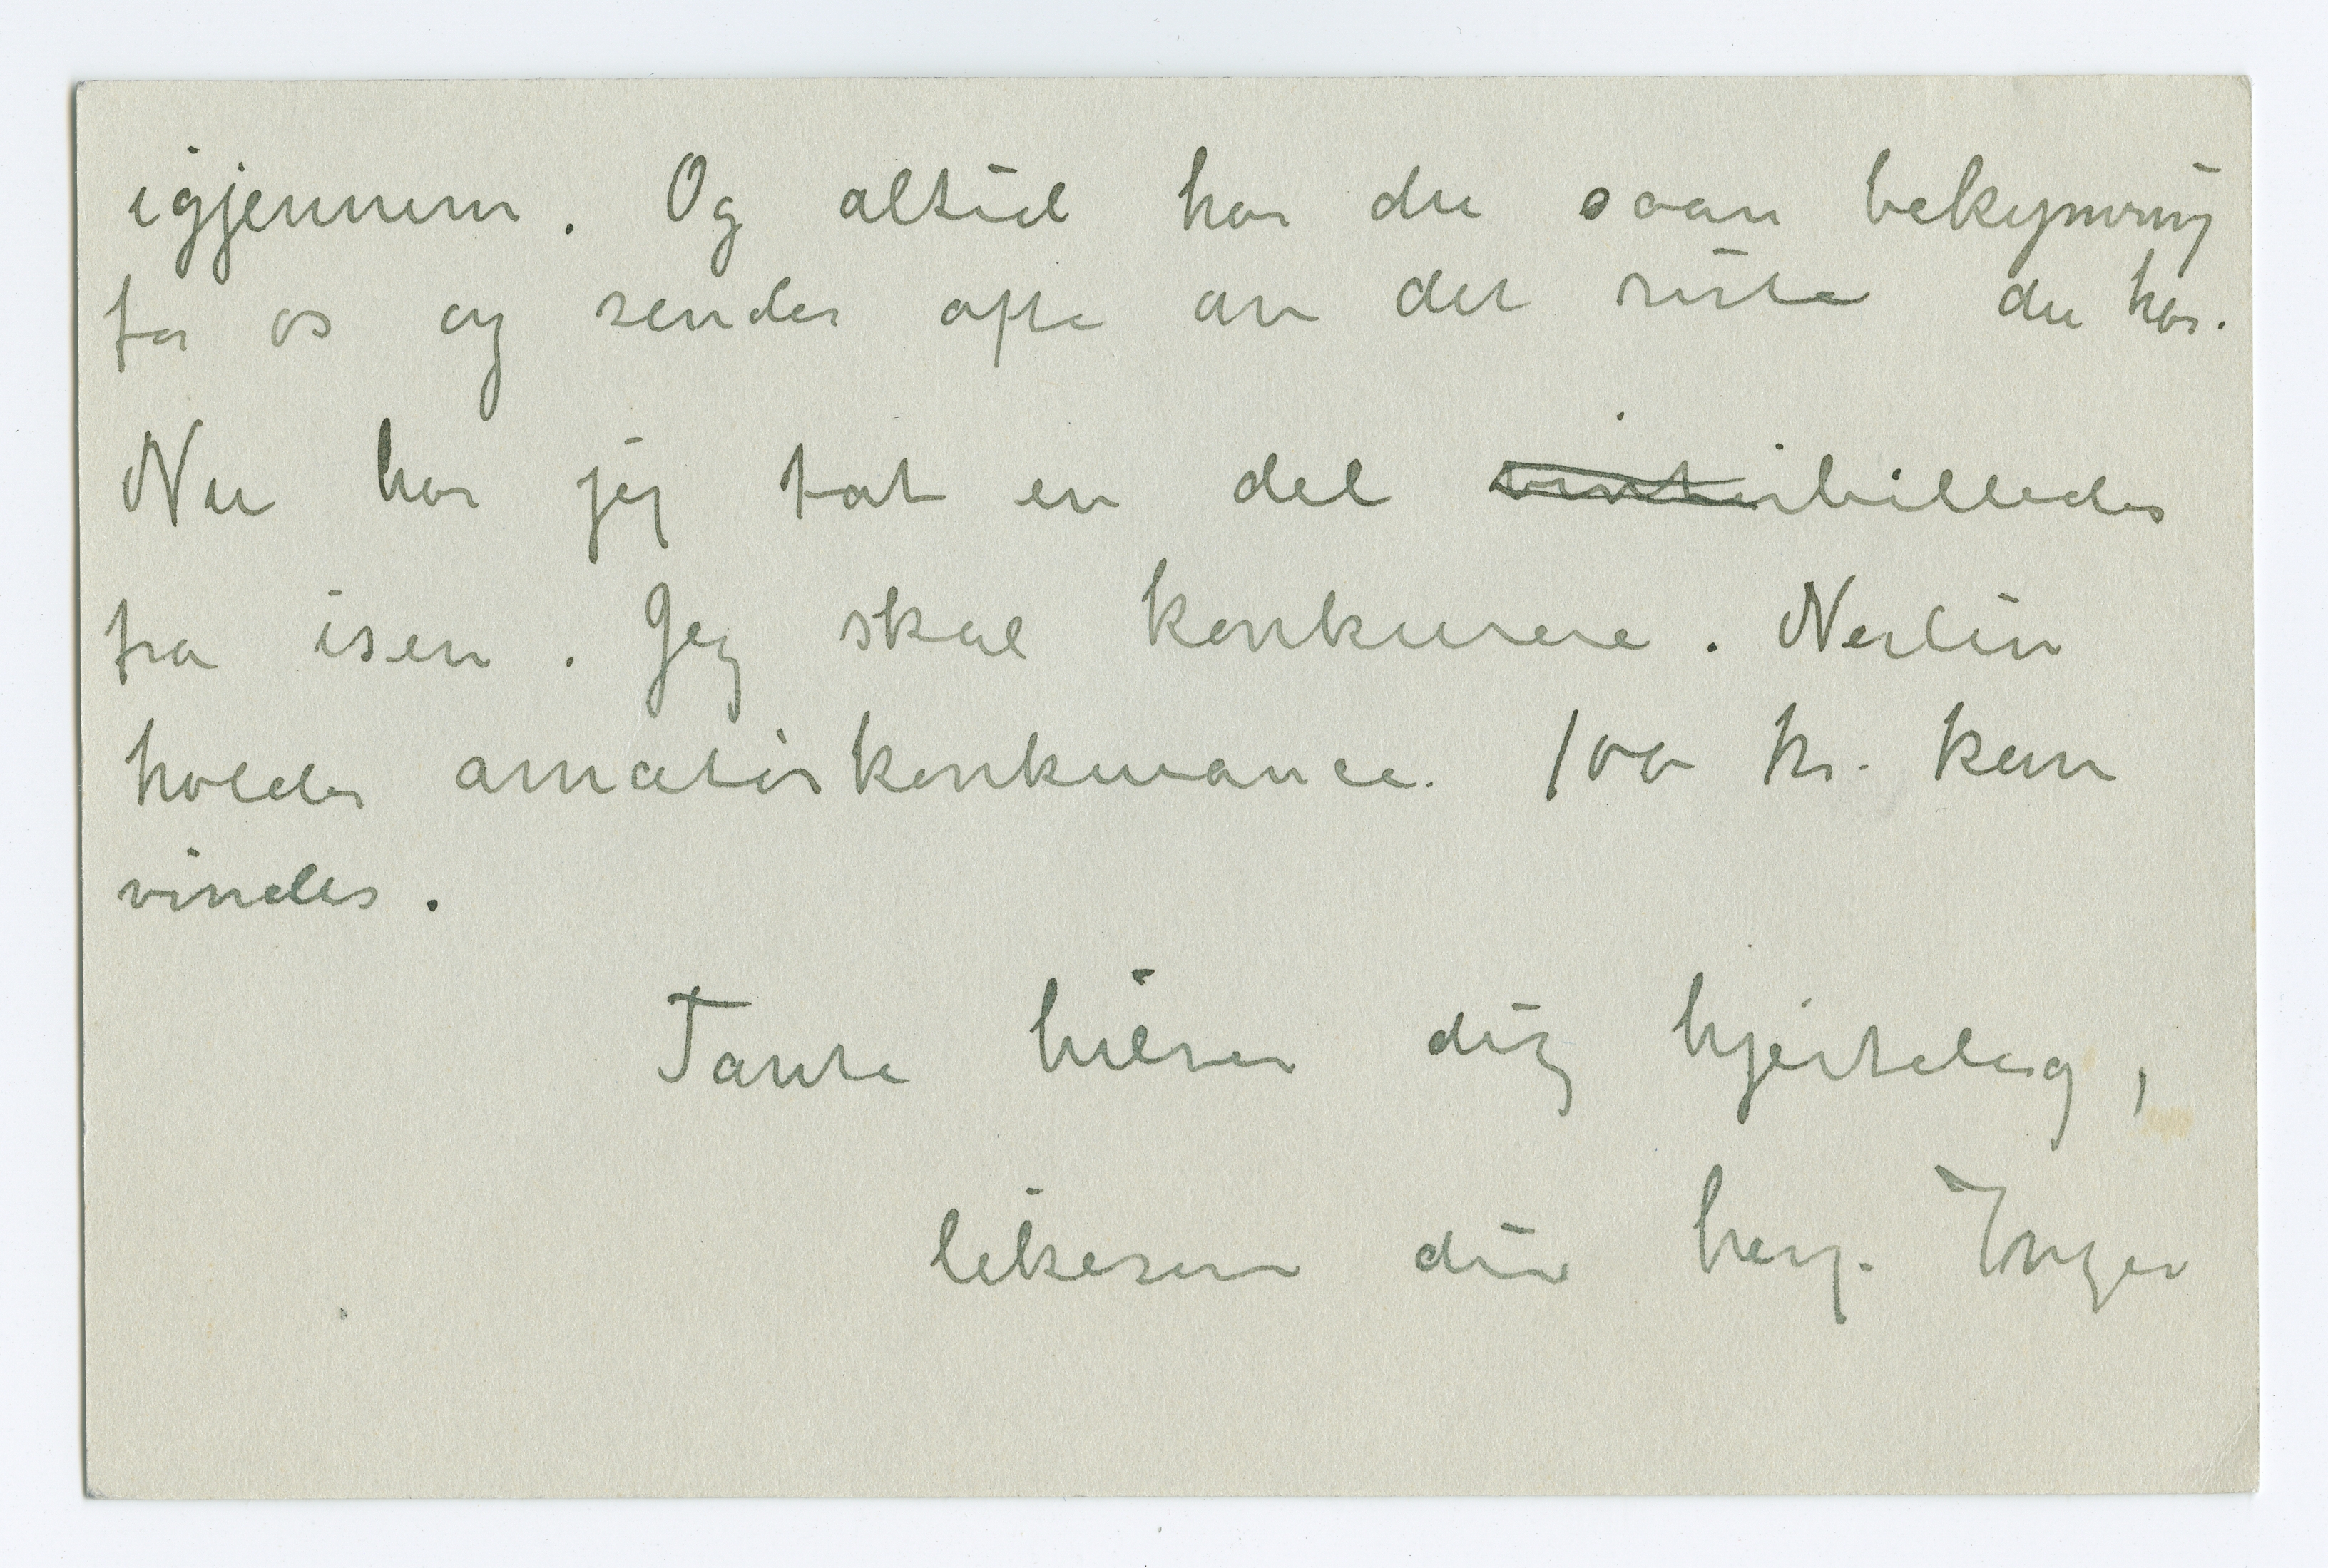 igjennem. Og altid har du saan bekymring
for os og sender ofte av det siste du har.
Nu har jeg tat en del vinterbilleder
fra isen. Jeg skal konkurere. Nerlin
holder amatörkonkurance. 100 kr. kan
vindes.
Tante hilser dig hjerteligg,
likesom din heng. Inger